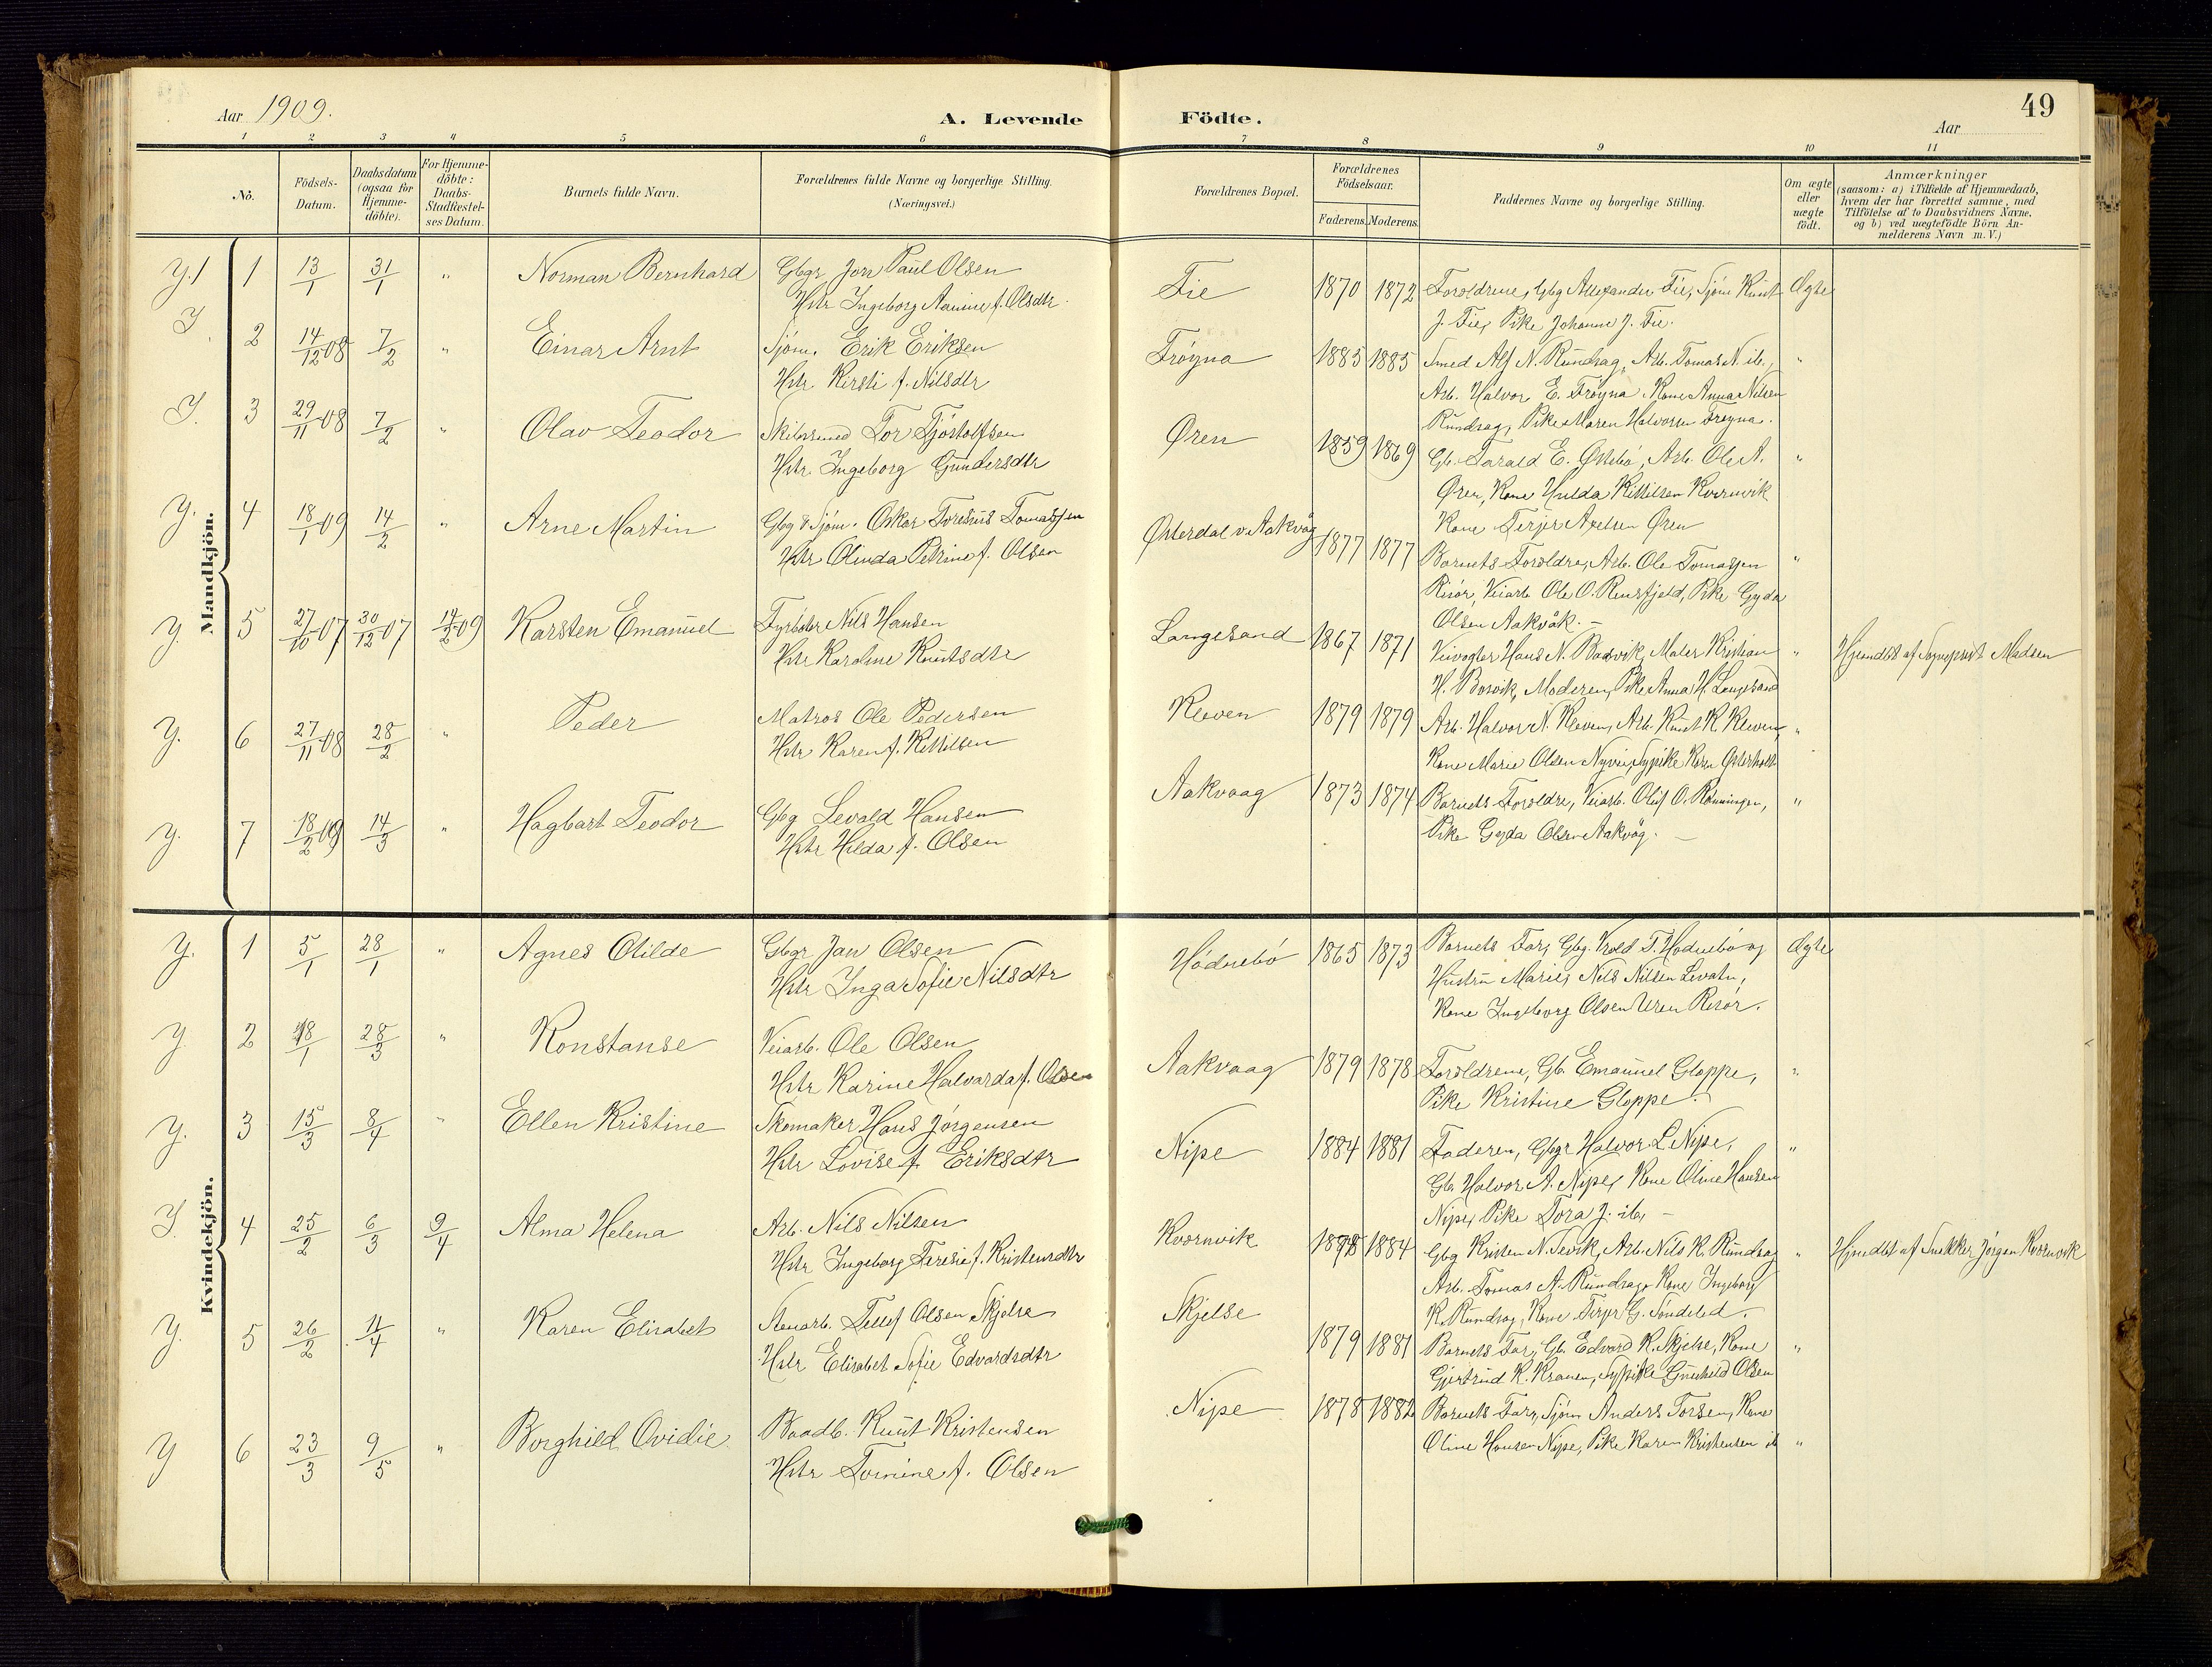 Aar 1909.
A. Levende Födte.
Aar
49
1 2 3 4 5 6 7 8 9 10 11
No.
Födsels-Datum.
Daabsdatum (ogsaa for Hjemme-döbte).
For Hjemme-döbte: Daabs-Stadfæstel-ses Datum.
Barnets fulde Navn.
Forældrenes fulde Navne og borgerlige Stilling.
(Næringsvei.)
Forældrenes Bopæl.
Forældrenes Födselsaar.
Faderens. Moderens.
Faddernes Navne og borgerlige Stilling.
Om ægte eller uægte födt.
Anmærkninger
(saasom: a) i Tilfælde af Hjemmedaab,
hvem der har forrettet samme, med
Tilföielse af to Daabsvidners Navne,
og b) ved uægtefödte Börn An-
melderens Navn m. V.)
Mandkjön.
1 13/1 31/1 " Norman Bernhard Gbgr Jon Paul Olsen
Hstr Ingeborg Namine f. Olsdtr.
Fie 1870 1872 Foroldrene, Gbg Allexander Fie, Sjøm Knut Ægte
J. Fie, Pike Johanne J. Fie.
2 14/12 08 7/2 " Einar Arnt Sjøm. Erik Eriksen
Hstr. Kirsti f. Nilsdtr
Frøyna 1885 1885 Smed Alf N. Rundsag, Arb. Tomas N. ib., "
Arb. Halvor E. Frøyna, Kone Anna Nilsen
Rundsag, Pike Maren Halvorsen Frøyna.
3 29/11 08 7/2 " Olav Teodor Skibssmed Tor Tjøstolfsen
Hstr. Ingeborg Gundersdtr
Øren 1859 1869 Gb. Tarald E. Østebø, Arb. Ole A. "
Øren, Kone Hulda Kittilsen Kvernvik
Kone Terjer Axelsen Øren
4 18/1 09 14/2 " Arne Martin Gbg & Sjøm. Oskar Toresius Tomassen
Hstr Olinda Petrine f. Olsen
Østerdal v. Aakvåg 1877 1877 Barnets Foroldre, Arb. Ole Tomassen "
Risør, Veiarb. Ole O. Rensfjeld, Pike Gyda
Olsen Aakvåk. –
5 27/10 07 30/12 07 14/2 09 Karsten Emanuel Fyrbøter Nils Hansen
Hstr Karoline Knutsdtr
Langesand 1867 1871 Veivogter Hans N. Bosvik, Maler Kristian " Hjemdbt af Sogneprest Madsen
H. Bosvik, Moderen, Pike Anna H. Langesand
6 27/11 08 28/2 " Peder Matros Ole Pedersen
Hstr Karen f. Kittilsen
Kleven 1879 1879 Arb. Halvor N. Kleven, Arb. Knut K. Kleven, "
Kone Marie Olsen Nyvei, Sypike Karen Østerholt
7 18/2 09 14/3 " Hagbart Teodor Gbg Levald Hansen
Hstr Hilda f. Olsen
Aakvaag 1873 1874 Barnets Foroldre, Veiarb. Oluf O. Rønningen, "
Pike Gyda Olsen Aakvåg. –
Kvindekjön.
1 5/1 28/1 " Agnes Otilde Gbgr Jan Olsen
Hstr Inga Sofie Nilsdtr
Hødnebø 1865 1873 Barnets Far, Gbg. Vrold T. Hødnebø og Ægte
Hustru Marie, Nels Nilsen Levatn,
Kone Ingeborg Olsen Uren Risør.
2 18/1 28/3 " Konstanse Veiarb. Ole Olsen
Hstr Karine Halvarda f. Olsen
Aakvaag 1879 1878 Foroldrene, Gb. Emanuel Gloppe, "
Pike Kristine Gloppe.
3 15/3 8/4 " Ellen Kristine Skomaker Hans Jørgensen
Hstr Lovise f. Eriksdtr
Nipe 1884 1881 Faderen, Gbgr Halvor L Nipe, "
Gb. Halvor A. Nipe, Kone Oline Hansen
Nipe, Pike Tora J. ib, –
4 25/2 6/3 9/4 Alma Helena Arb. Nils Nilsen
Hstr Ingeborg Teresie f. Kristensdtr
Kvernvik 1884 Gbg Kristen N. Sevik, Arb. Nils K. Rundsag " Hjemdbt af Snekker Jørgen Kvernvik
Arb. Tomas A. Rundsag, Kone Ingeborg
K. Rundsag, Kone Terjer G. Søndeled. –
5 26/2 11/4 " Karen Elisabet Stenarb. Tellef Olsen Skjelse
Hstr Elisabet Sofie Edvardsdtr
Skjelse 1879 1881 Barnets Far, Gb. Edvard K. Skjelse, Kone "
Gjertrud K. Kranen, Sypike Gunhild Olsen
6 23/3 9/5 " Borghild Ovidie Baadb. Knut Kristensen
Hstr Tomine f. Olsen
Nipe 1878 1882 Barnets Far, Sjøm Anders Torsen, Kone
Oline Hansen Nipe, Pike Karen Kristensen ib "